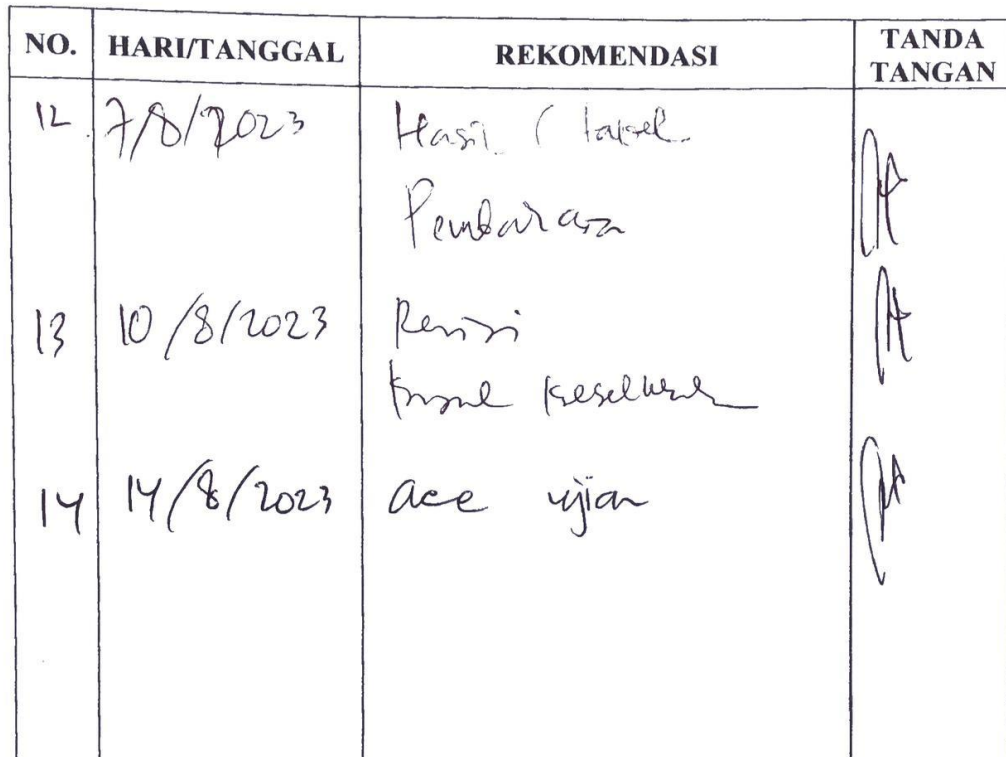 NO. HARI/TANGGAL REKOMENDASI TANDA TANGAN
12. 7/8/2023 Hasil ( tabel
Pembahasan
13 10/8/2023 Revisi
keseluruh
14 14/8/2023 acc ujian